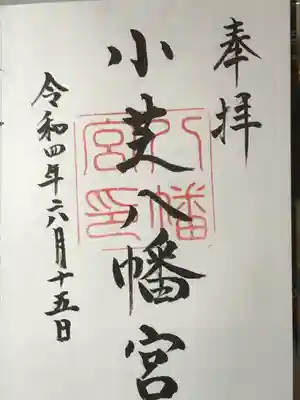 奉拝
小芝八幡宮
八幡宮印
令和四年六月十五日